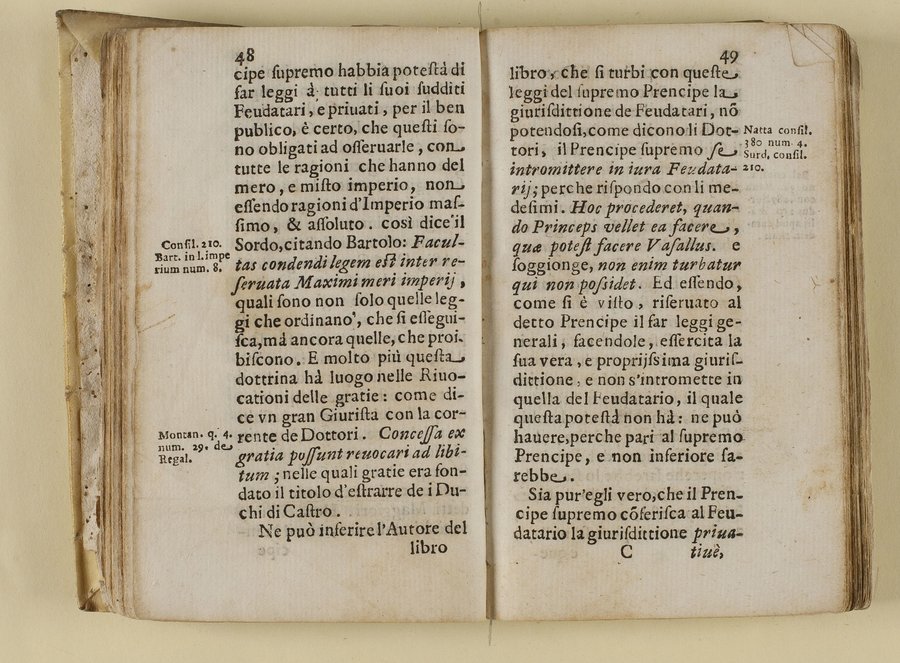 48
cipe ſupremo habbia poteſtà di
far leggi à tutti li ſuoi ſudditi
Feudatari, e priuati, per il ben
publico, è certo, che queſti ſo-
no obligati ad oſſeruarle, con
tutte le ragioni che hanno del
mero, e miſto imperio, non
eſſendo ragioni d'Imperio maſ-
ſimo, & aſſoluto. così dice il
Sordo, citando Bartolo: Facul-
tas condendi legem eſt inter re-
ſeruata Maximi meri imperij,
quali ſono non ſolo quelle leg-
gi che ordinano, che ſi eſſegui-
ſca, mà ancora quelle, che proi-
biſcono. E molto più queſta
dottrina hà luogo nelle Riuo-
cationi delle gratie: come di-
ce vn gran Giuriſta con la cor-
rente de Dottori. Conceſſa ex
gratia poſſunt reuocari ad libi-
tum; nelle quali gratie era fon-
dato il titolo d'eſtrarre de i Du-
chi di Caſtro.
Ne può inferire l'Autore del
libro
Conſil. 210.
Bart. in l. impe
rium num. 8.
Montan. q. 4.
num. 29. de
Regal.
49
libro, che ſi turbi con queſte
leggi del ſupremo Prencipe la
giuriſdittione de Feudatari, nõ
potendoſi, come dicono li Dot-
tori, il Prencipe ſupremo ſe
intromittere in iura Feudata-
rij; perche riſpondo con li me-
deſimi. Hoc procederet, quan-
do Princeps vellet ea facere,
quæ poteſt facere Vaſallus. e
ſoggionge, non enim turbatur
qui non poſsidet. Ed eſſendo,
come ſi è viſto, riſeruato al
detto Prencipe il far leggi ge-
nerali, facendole, eſſercita la
ſua vera, e proprijſsima giuriſ-
dittione, e non s'intromette in
quella del Feudatario, il quale
queſta poteſtà non hà: ne può
hauere, perche pari al ſupremo
Prencipe, e non inferiore ſa-
rebbe.
Sia pur'egli vero, che il Pren-
cipe ſupremo cõferiſca al Feu-
datario la giuriſdittione priua-
C tiuè,
Natta conſil.
380 num 4.
Surd. conſil.
210.